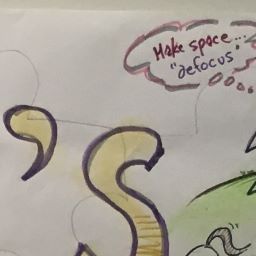 Make space...
"defocus"
'S